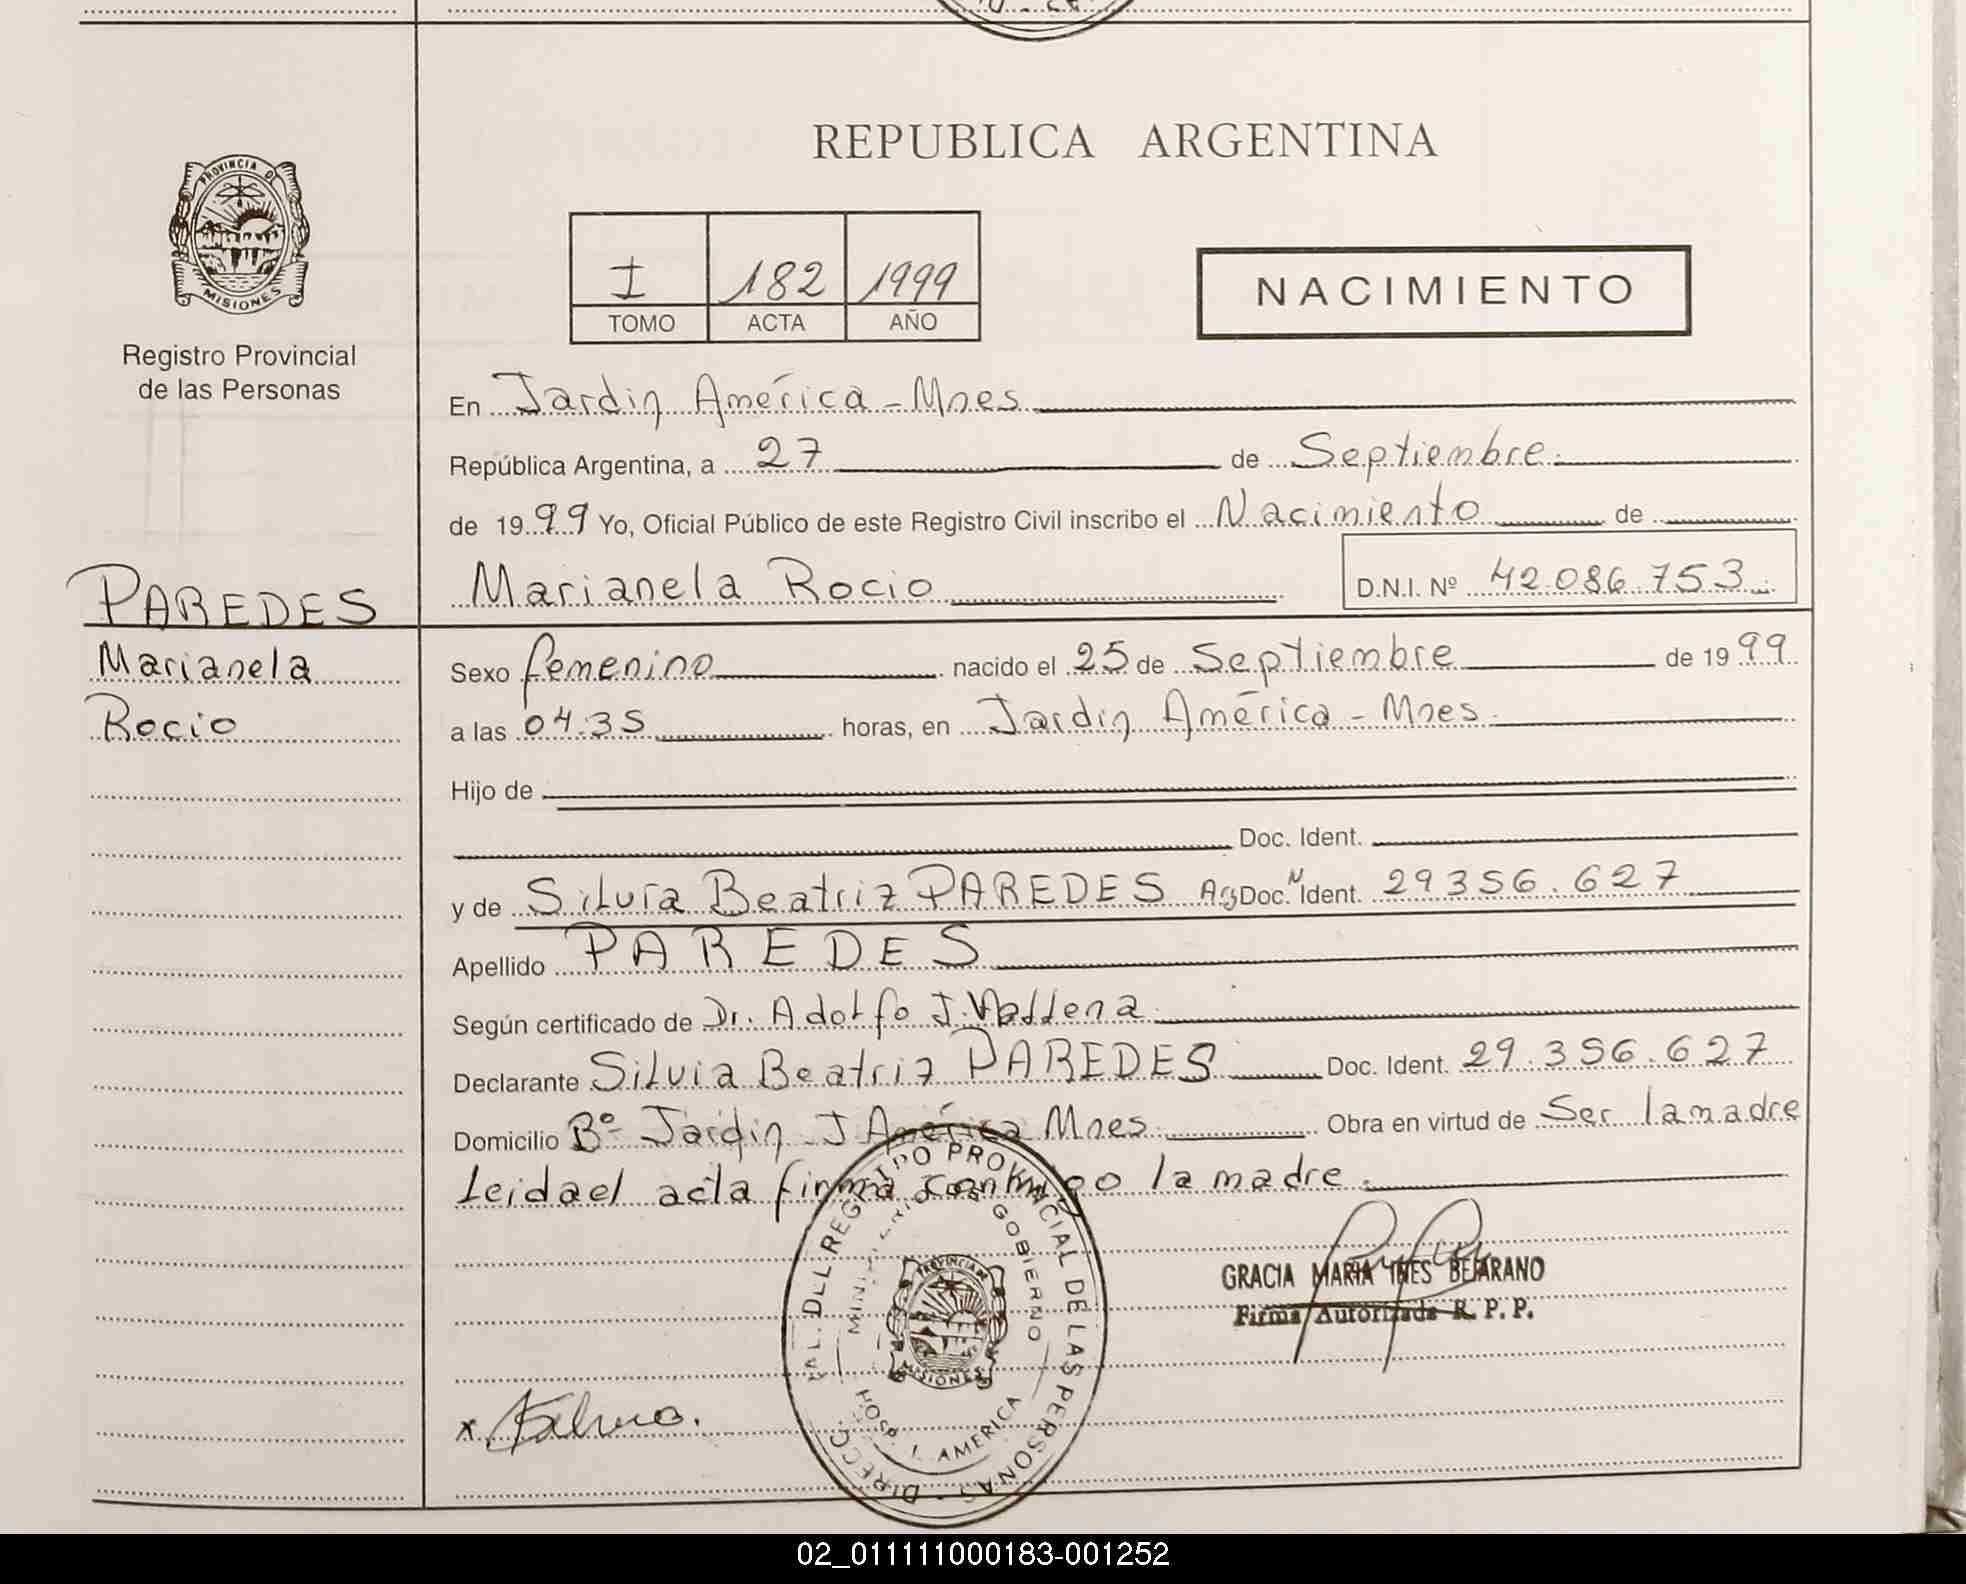 REPUBLICA ARGENTINA
PROVINCIA DE
MISIONES
Registro Provincial
de las Personas
I 182 1999
TOMO ACTA AÑO
NACIMIENTO
En Jardin América - Mnes
República Argentina, a 27 de Septiembre
de 1999 Yo, Oficial Público de este Registro Civil inscribo el Nacimiento de
Marianela Rocio D.N.I. Nº 42.086.753
PAREDES
Marianela
Rocio
Sexo femenino nacido el 25 de Septiembre de 1999
a las 04:35 horas, en Jardin América - Mnes.
Hijo de
Doc. Ident.
y de Silvia Beatriz PAREDES Arg Doc. N Ident. 29356.627
Apellido PAREDES
Según certificado de Dr. Adolfo J.
Declarante Silvia Beatriz PAREDES Doc. Ident. 29.356.627
Domicilio Bº Jardin J América Mnes. Obra en virtud de Ser la madre
Leida el acta firma conmigo la madre.
DEL REGISTRO PROVINCIAL DE LAS PERSONAS - DIRECC.
MINISTERIO DE GOBIERNO
PROVINCIA DE
MISIONES
HOSP. J. AMERICA
GRACIA MARIA INES BEJARANO
Firma Autorizada R. P. P.
x Silvia.
02_011111000183-001252